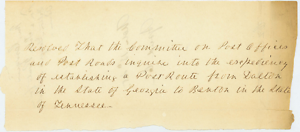 Resolved That the Committee on Post Offices
and Post Roads, inquire into the expediency
of establishing a Post Route from Dalton
in the State of Georgia to Benton in the State
of Tennessee